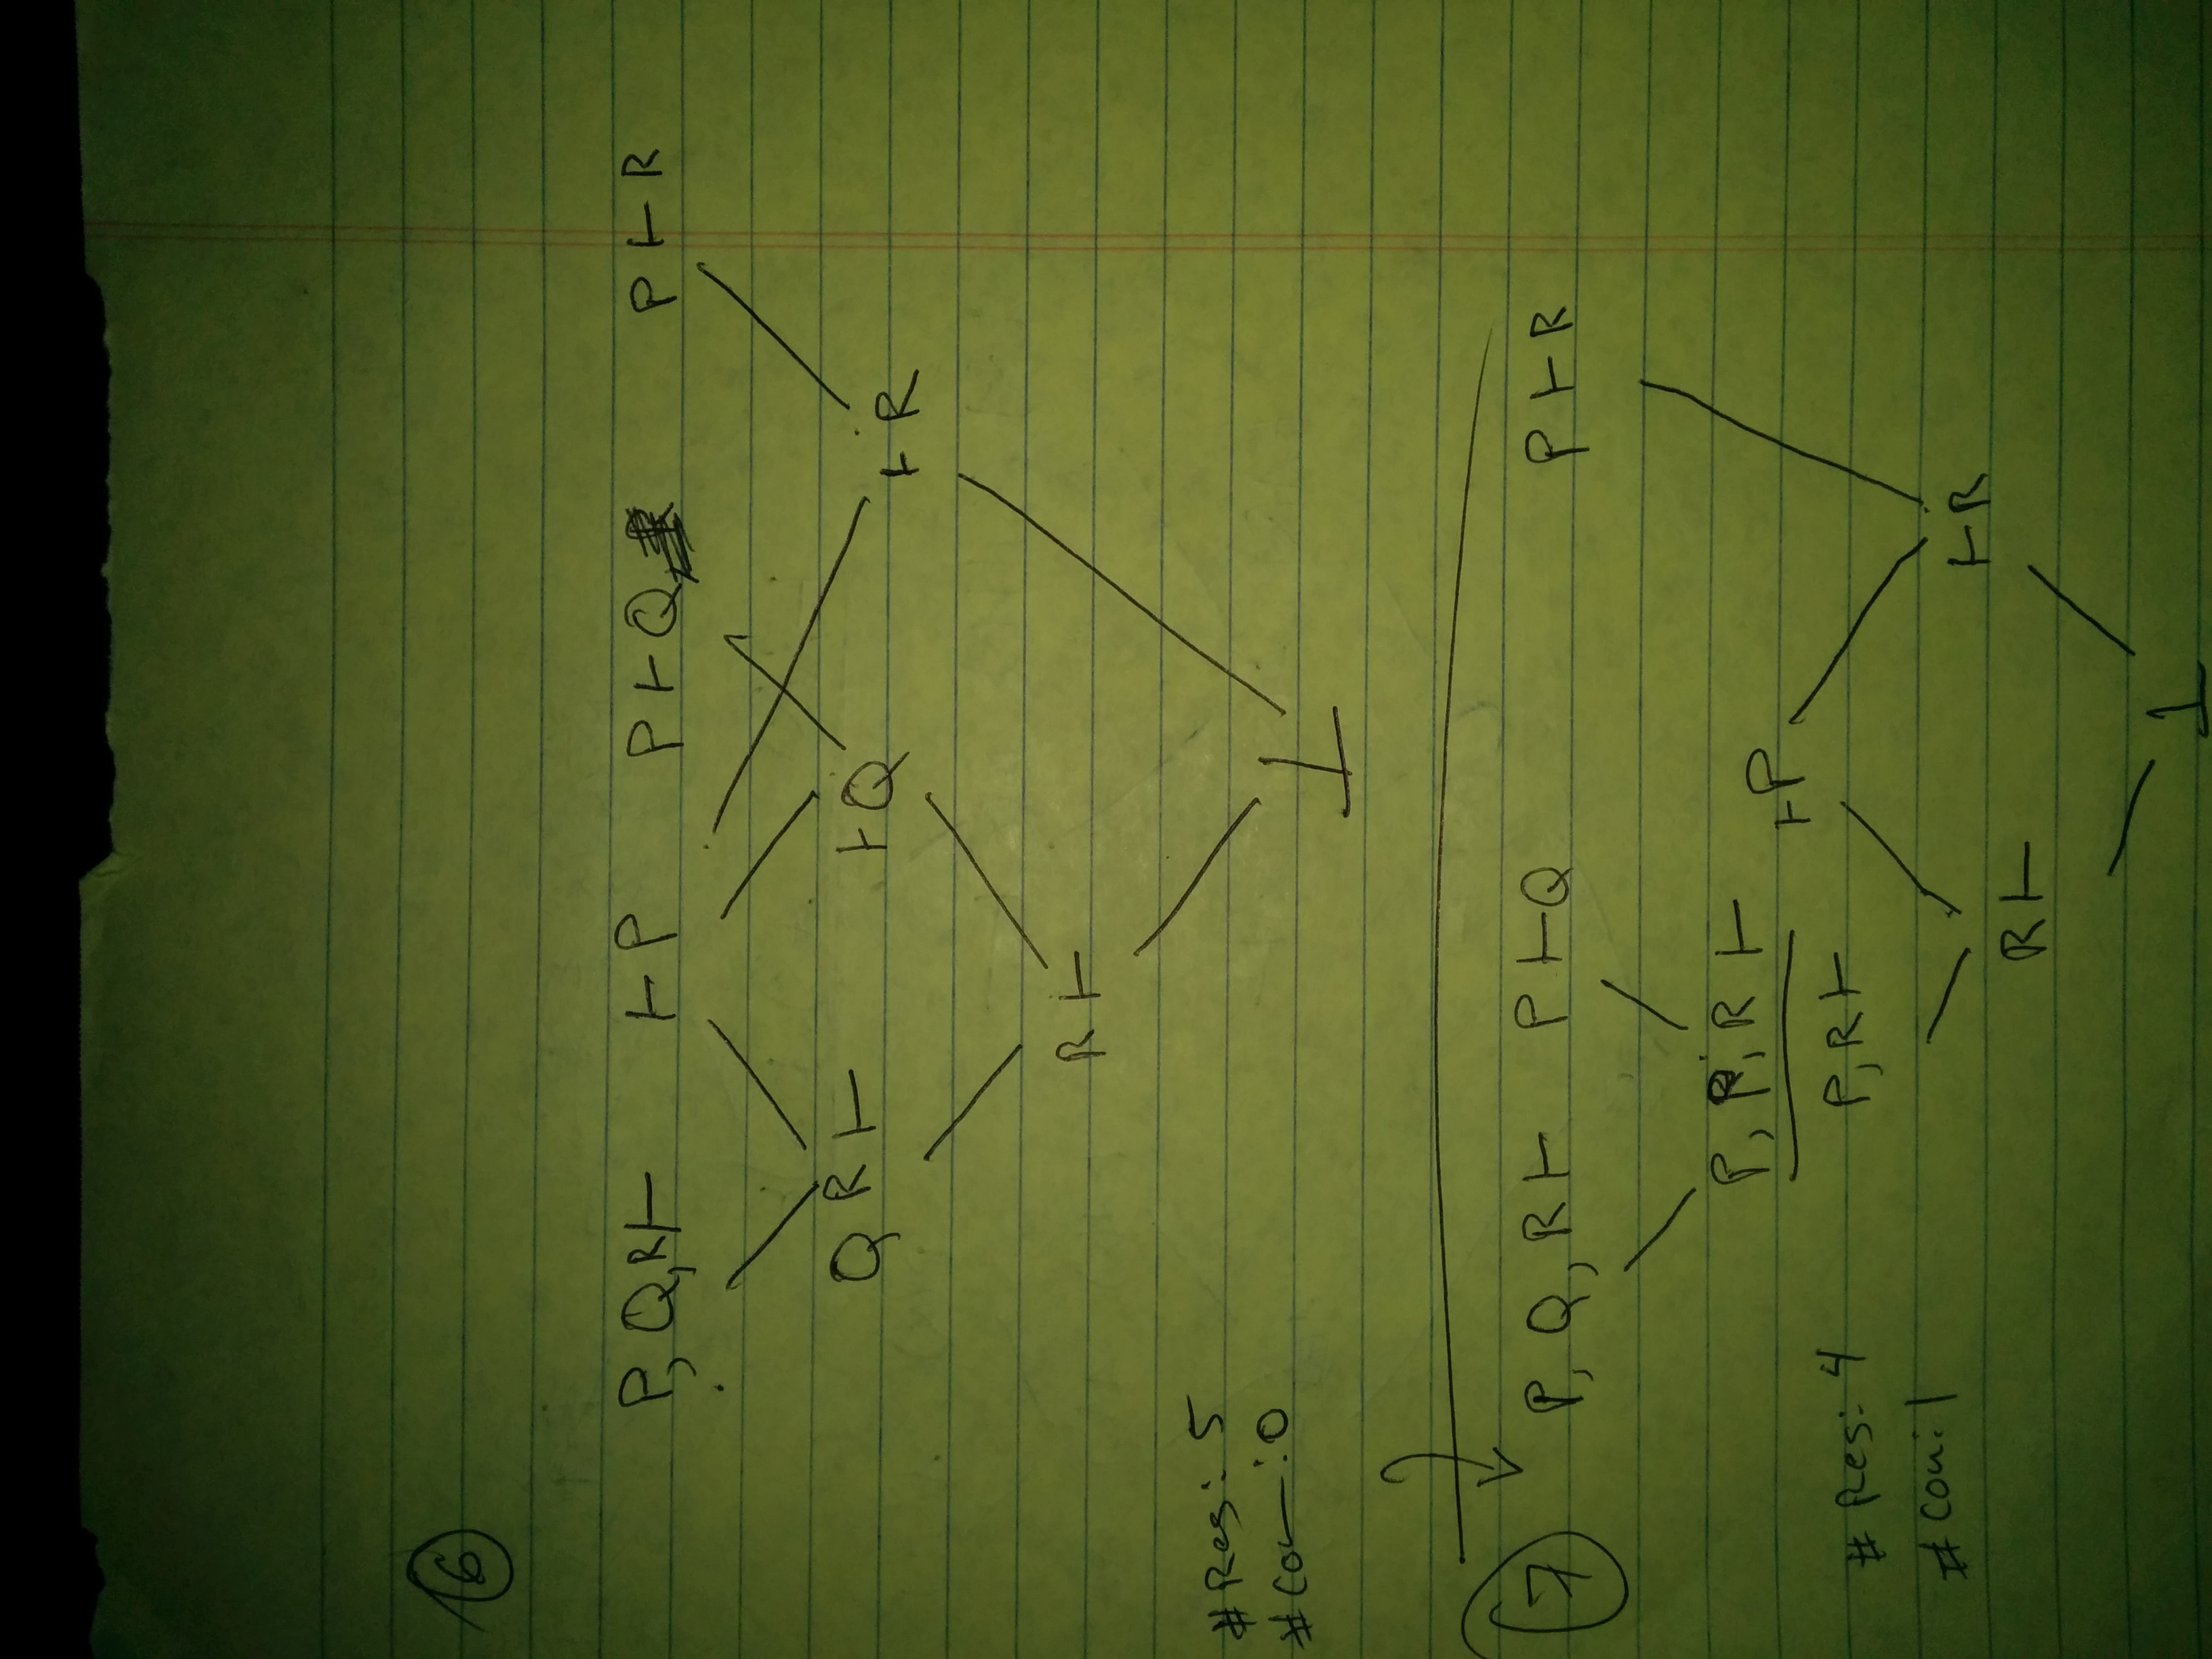 16
P, Q, R ⊢ ⊢ P P ⊢ Q P ⊢ R
Q R ⊢ ⊢ Q ⊢ R
R ⊢
⊥
# Res: 5
# Con: 0
17
P, Q, R ⊢ P ⊢ Q P ⊢ R
P, P, R ⊢ ⊢ P
P, R ⊢
R ⊢ ⊢ R
⊥
# Res: 4
# Con: 1